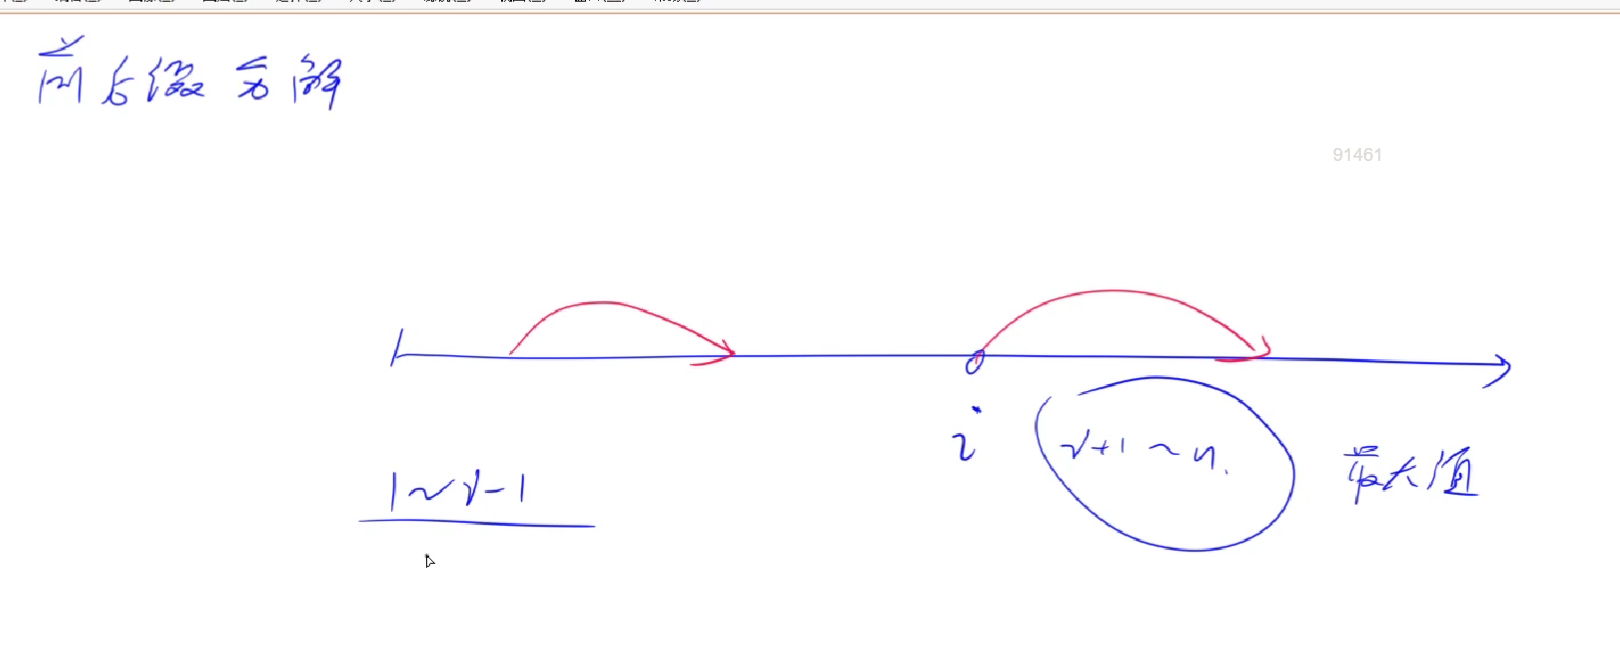 前后缀分解
91461
i
i+1 ~ n.
最大值
1~i-1